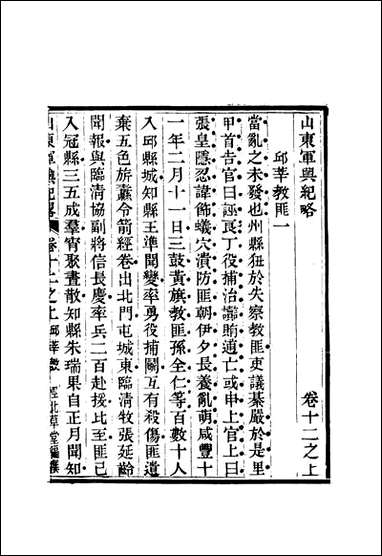 山東軍興紀略　卷十二之上
邱莘教匪一
當亂之未發也州縣狃於失察教匪吏議綦嚴於是里
甲首告官曰誣良丁役捕治譸賄逋亡或申上官上曰
張皇隱忍諱飾蟻穴潰防匪朝伊夕長養亂萌咸豐十
一年二月十一日三鼓黃旗教匪孫全仁等百數十人
入邱縣城知縣王準聞變率勇役捕鬬互有殺傷匪遺
棄五色旂纛令箭經卷出北門屯城東臨清牧張延齡
聞報與臨清協副將信長慶率兵二百赴援比至匪已
入冠縣三五成羣宵聚晝散知縣朱瑞果自正月聞知
山東軍興紀略　卷十二之上　邱莘教